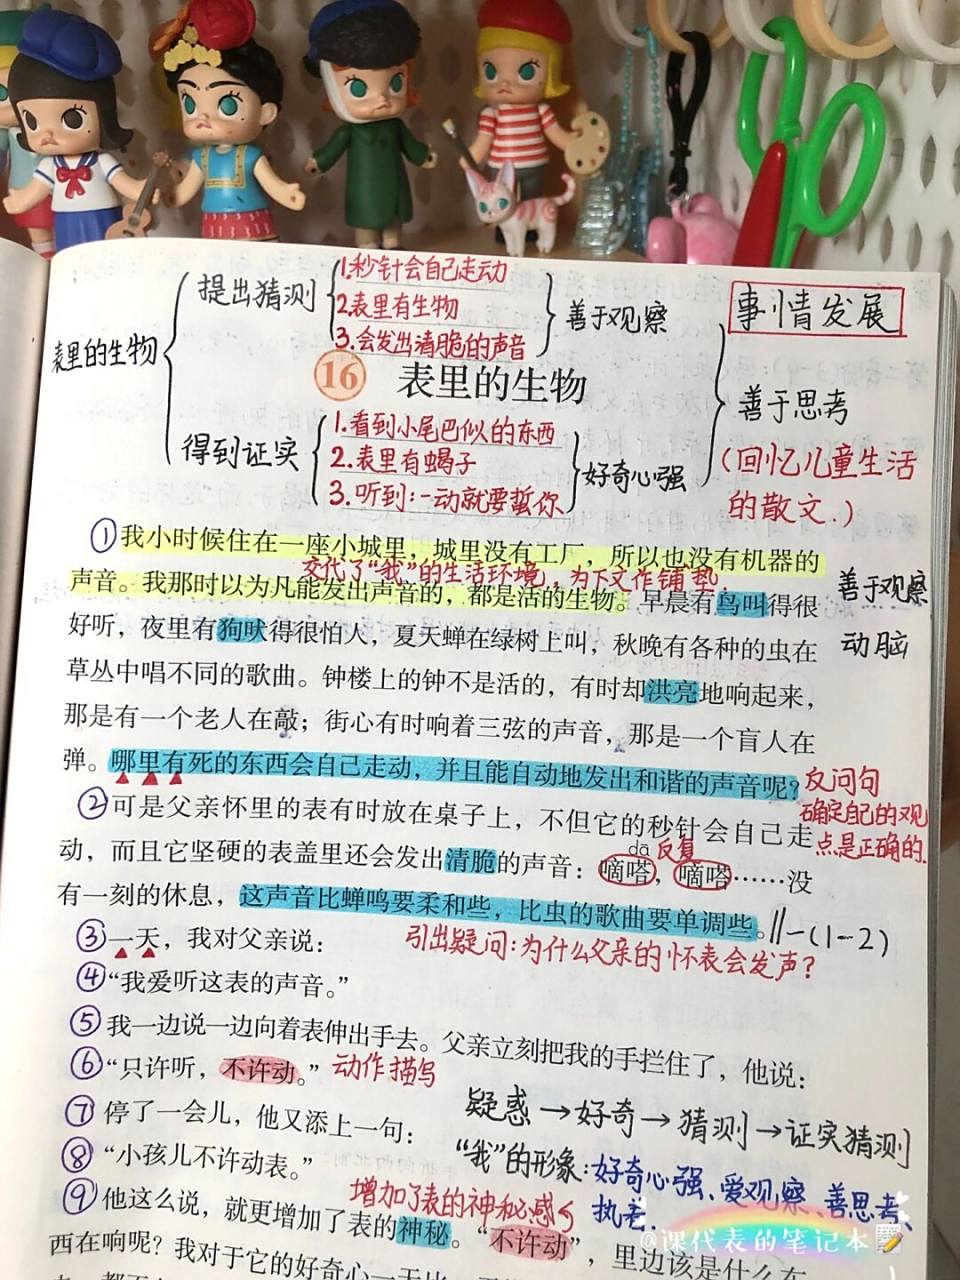 提出猜测
1.秒针会自己走动
2.表里有生物
3.会发出清脆的声音
善于观察
事情发展
表里的生物
16 表里的生物
善于思考
得到证实
1.看到小尾巴似的东西
2.表里有蝎子
3.听到:一动就要蜇你
好奇心强
(回忆儿童生活
的散文.)
①我小时候住在一座小城里，城里没有工厂，所以也没有机器的
交代了“我”的生活环境，为下文作铺垫.
声音。我那时以为凡能发出声音的，都是活的生物。早晨有鸟叫得很
善于观察
好听，夜里有狗吠得很怕人，夏天蝉在绿树上叫，秋晚有各种的虫在
动脑
草丛中唱不同的歌曲。钟楼上的钟不是活的，有时却洪亮地响起来，
那是有一个老人在敲；街心有时响着三弦的声音，那是一个盲人在
弹。哪里有死的东西会自己走动，并且能自动地发出和谐的声音呢？
反问句
确定自己的观
点是正确的.
②可是父亲怀里的表有时放在桌子上，不但它的秒针会自己走
dā 反复
动，而且它坚硬的表盖里还会发出清脆的声音：嘀嗒，嘀嗒……没
有一刻的休息，这声音比蝉鸣要柔和些，比虫的歌曲要单调些。‖一(1-2)
③一天，我对父亲说：
引出疑问:为什么父亲的怀表会发声?
④“我爱听这表的声音。”
⑤我一边说一边向着表伸出手去。父亲立刻把我的手拦住了，他说：
⑥“只许听，不许动。” 动作描写
⑦停了一会儿，他又添上一句：
疑惑→好奇→猜测→证实猜测
⑧“小孩儿不许动表。”
“我”的形象:好奇心强、爱观察、善思考、
执着.
增加了表的神秘感
⑨他这么说，就更增加了表的神秘。“不许动”，里边该是什么东
西在响呢？我对于它的好奇心一天比
@课代表的笔记本